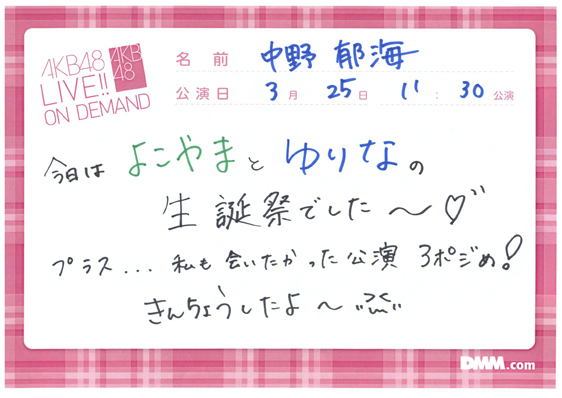 AKB48
LIVE!!
ON DEMAND
AKB
48
名前 中野 郁海
公演日 3月 25日 11:30 公演
今日は よこやまと ゆりなの
生誕祭でした〜♡”
プラス... 私も会いたかった公演 3ポジめ!
きんちょうしたよ〜
DMM.com